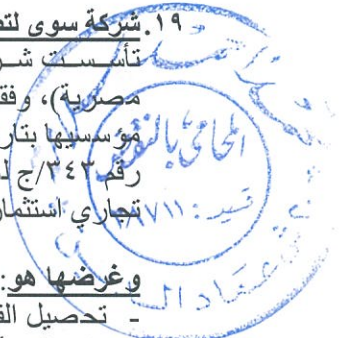 ١٩. شركة سوى لتص
تأسست شر
مصرية)، وفق
مؤسسيها بتار
رقم ٣٤٣/ج ل
تجاري استثمار
وغرضها هو:
- تحصيل الف
المحامي بالنقض
قيد: